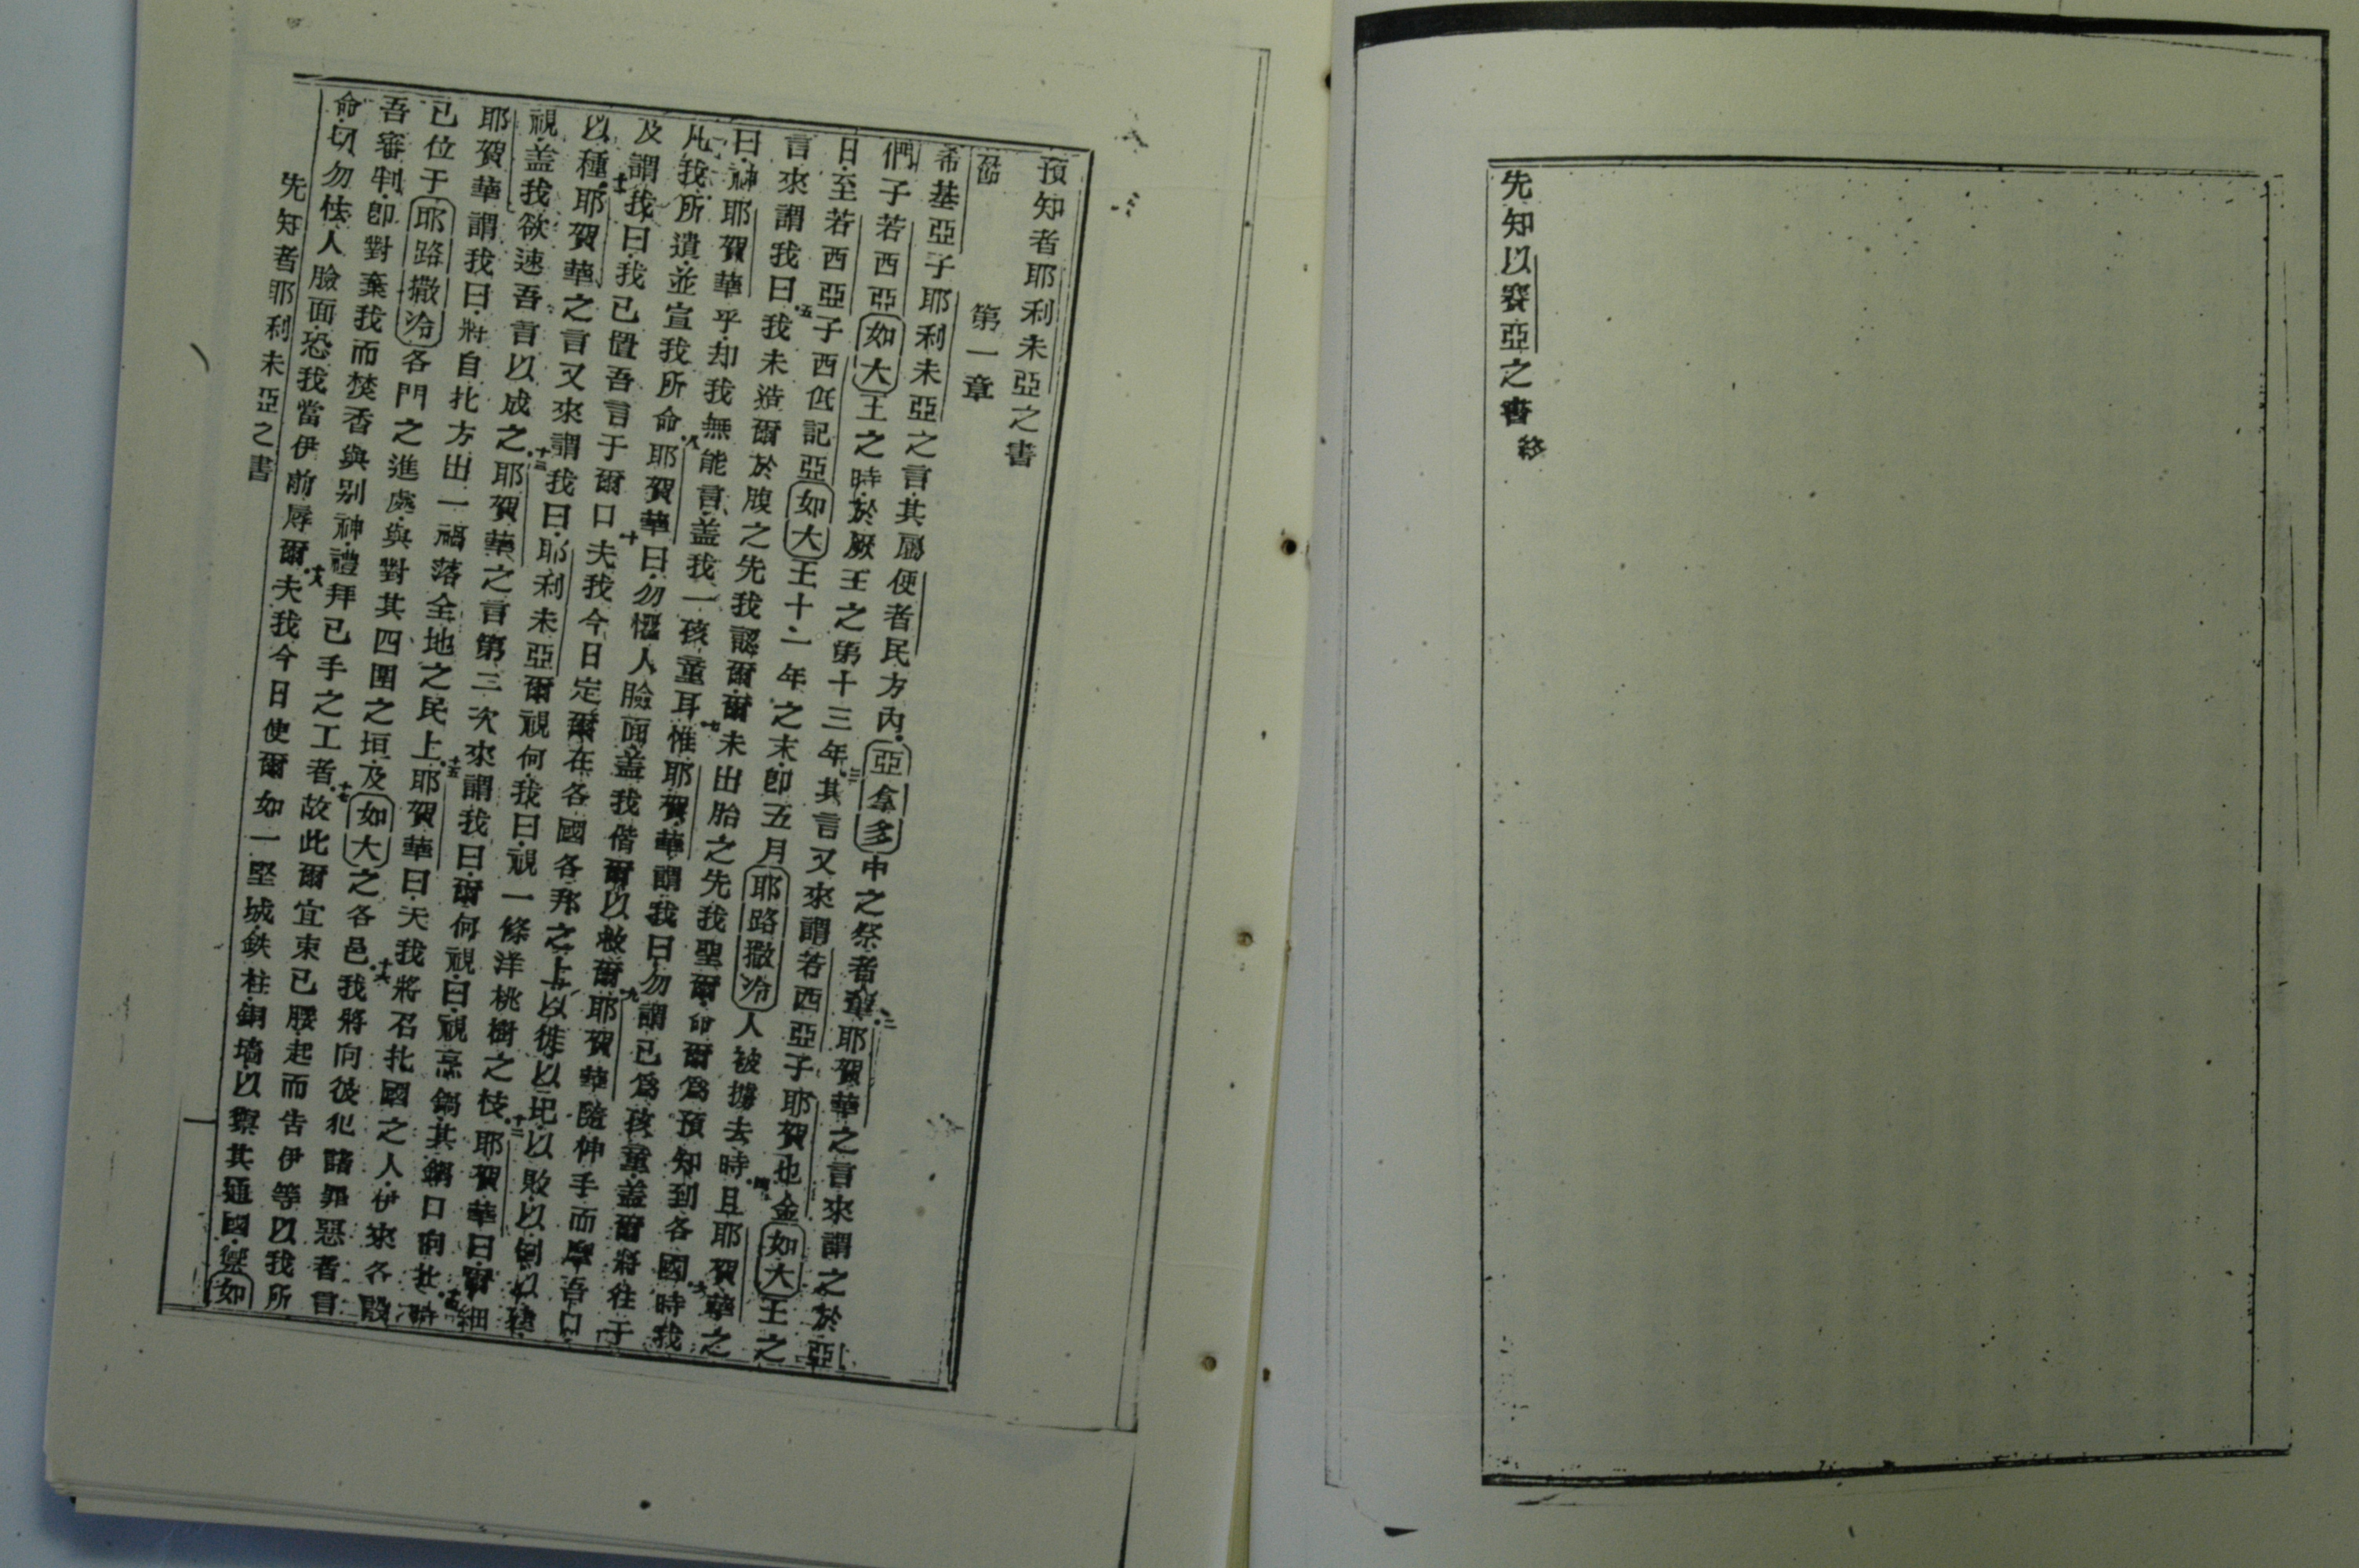 先知以賽亞之書 終
預知者耶利未亞之書
第一章
希基亞子耶利未亞之言.其屬便者民方內.亞拿多中之祭者輩.二耶賀華之言來謂之於亞
們子若西亞如大王之時.於厥王之第十三年.三其言又來謂若西亞子耶賀也金如大王之
日.至若西亞子西底記亞如大王十一年之末.卽五月耶路撒冷人被擄去時.四且耶賀華之
言來謂我曰.五我未造爾於腹之先我認爾.爾未出胎之先我聖爾.命爾為預知到各國時.六我
曰.神耶賀華乎.却我無能言.蓋我一孩童耳.七惟耶賀華謂我曰.勿謂已為孩童.蓋爾將往于
凡我所遺.並宣我所命.八耶賀華曰.勿懼人臉面.蓋我偕爾以救爾.九耶賀華隨伸手而摩吾口.
及謂我曰.我已置吾言于爾口.十夫我今日定爾在各國各邦之上.以徙以圯.以敗.以倒.以建.
以種.十一耶賀華之言又來謂我曰.耶利未亞爾視何.我曰.視一條洋桃樹之枝.十二耶賀華曰.爾細
視.蓋我欲速吾言以成之.十三耶賀華之言第三次來謂我曰.爾何視.曰.視烹鍋.其鍋口向北.十四時
耶賀華謂我曰.將自北方出一禍落全地之民上.十五耶賀華曰.夫我將召北國之人.伊來各設
已位于耶路撒冷各門之進處.與對其四圍之垣.及如大之各邑.十六我將向彼犯諸罪惡者言
吾審判.卽對棄我而焚香與别神.禮拜已手之工者.十七故此爾宜束已腰.起而告伊等以我所
命.切勿怯人臉面.恐我當伊前辱爾.十八夫我今日使爾如一堅城.鉄柱.銅墻.以禦其通國.禦如
先知者耶利未亞之書 一